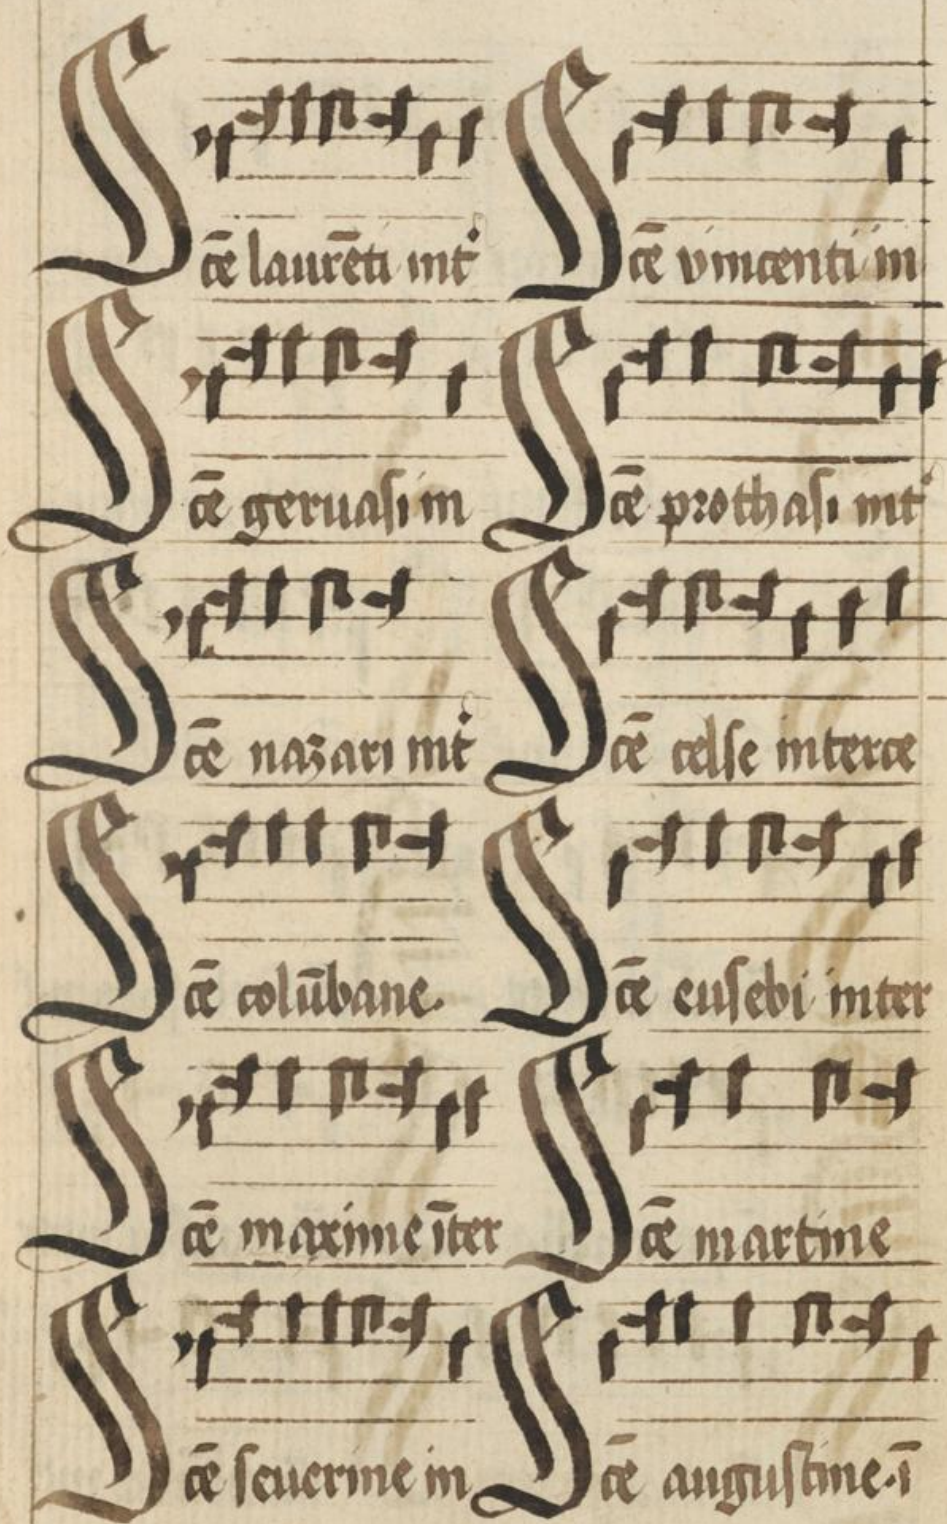 Sc̄e laurēti int̉ Sc̄e vincenti in
Sc̄e geruasi in Sc̄e prothasi int̉
Sc̄e nazari int̉ Sc̄e celse interce
Sc̄e colūbane. Sc̄e eusebi inter
Sc̄e maxime īter Sc̄e martine
Sc̄e seuerine in Sc̄e augustine. ī